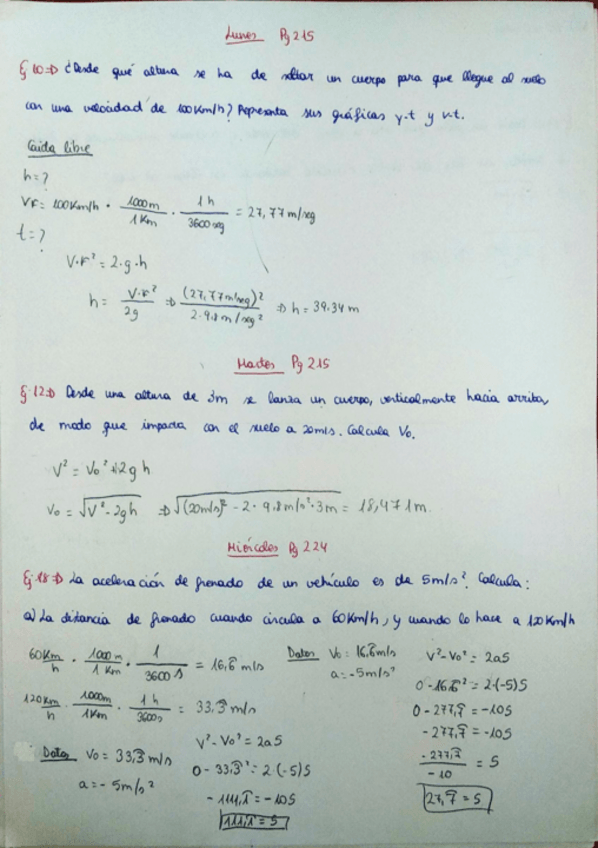 Lunes Pg 215
Ej 10=D ¿Desde qué altura se ha de soltar un cuerpo para que llegue al suelo
con una velocidad de 100Km/h? Representa sus gráficas y.t y v.t.
Caída libre
h=?
VF= 100Km/h · 1000m/1Km · 1h/3600seg = 27,77m/seg
t=?
V·F² = 2·g·h
h= V·F²/2g ⇒ (27,77m/seg)²/2·9.8m/seg² ⇒ h= 39.34m
Martes Pg 215
Ej.12=D Desde una altura de 3m se lanza un cuerpo, verticalmente hacia arriba,
de modo que impacta con el suelo a 20m/s. Calcula Vo.
V² = Vo² + 2gh
Vo = √V²-2gh ⇒ √(20m/s)² - 2·9.8m/s²·3m = 18,471m.
Miércoles Pg 224
Ej.18=D La aceleración de frenado de un vehículo es de 5m/s². Calcula:
a) La distancia de frenado cuando circula a 60Km/h, y cuando lo hace a 120Km/h
60Km/h · 1000m/1Km · 1/3600s = 16,6̂ m/s
120Km/h · 1000m/1Km · 1h/3600s = 33,3̂ m/s
Datos Vo = 33,3̂ m/s
a = - 5m/s²
V² - Vo² = 2aS
0 - 33,3̂² = 2·(-5)S
- 111,1̂ = -10S
111,1̂ = S
Datos Vo = 16,6̂m/s
a = -5m/s²
V² - Vo² = 2aS
0 - 16,6̂² = 2·(-5)S
0 - 277,7̂ = -10S
- 277,7̂ = -10S
-277,7̂/-10 = S
27,7̂ = S